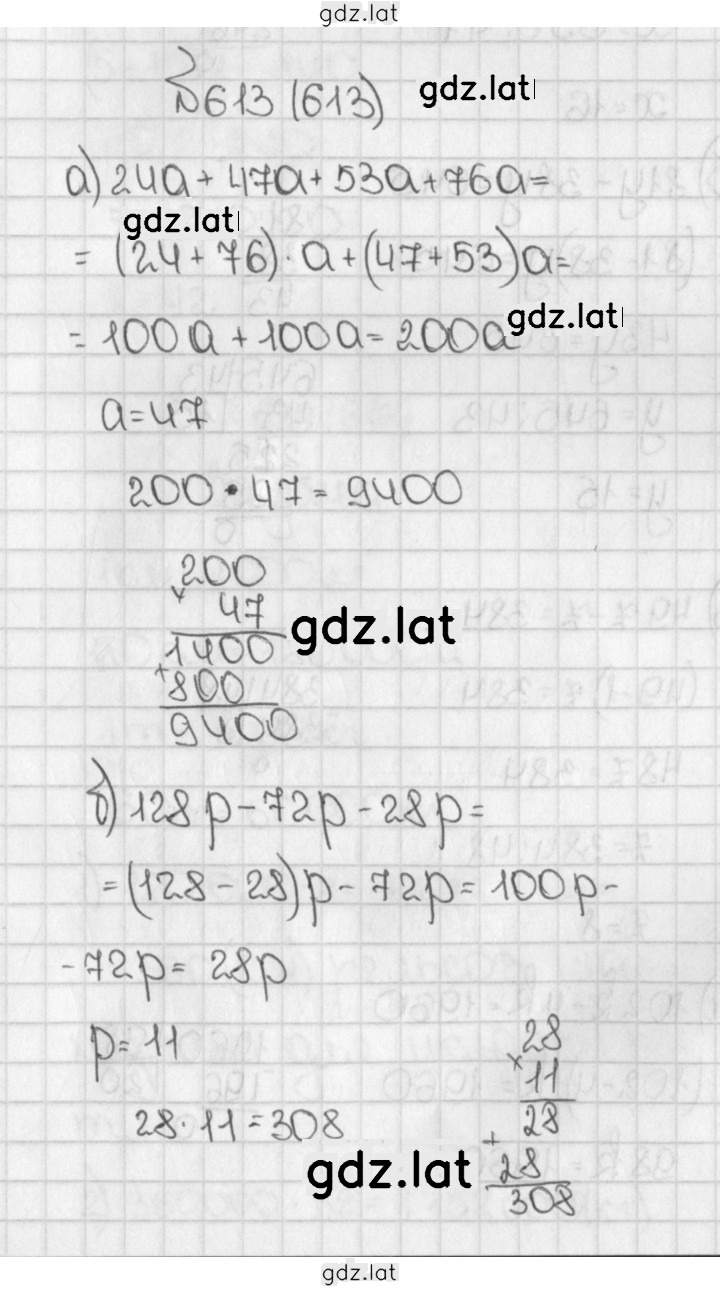 gdz.lat
№613 (613) gdz.lat
а) 24а + 47а + 53а + 76а =
gdz.lat
= (24 + 76) · а + (47 + 53)а =
gdz.lat
= 100а + 100а = 200а
а = 47
200 · 47 = 9400
200
× 47
gdz.lat
1400
+ 800
9400
б) 128р - 72р - 28р =
= (128 - 28)р - 72р = 100р -
- 72р = 28р
р = 11
28 · 11 = 308
28
× 11
28
+ 28
308
gdz.lat
gdz.lat